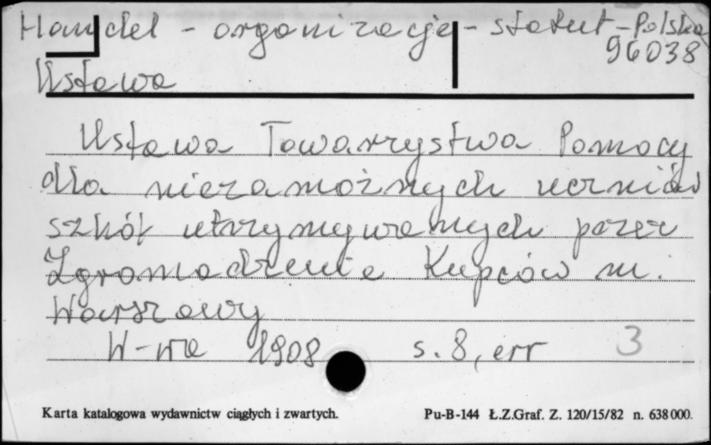 Handel - organizacje - statut - Polska
96038
Ustawa
Ustawa Towarzystwa Pomocy
dla niezamożnych uczniów
szkół utrzymywanych przez
Zgromadzenie Kupców m.
Warszawy
W-wa 1908 s. 8, err 3
Karta katalogowa wydawnictw ciągłych i zwartych. Pu-B-144 Ł.Z.Graf. Z. 120/15/82 n. 638 000.